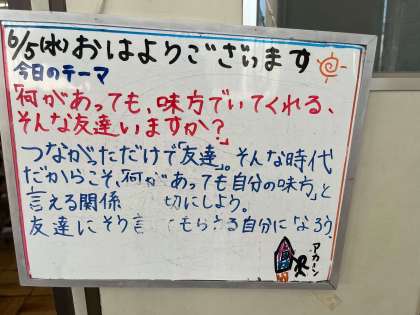 6/5(水)おはようございます
今日のテーマ
「何があっても、味方でいてくれる、
そんな友達いますか?」
つながっただけで「友達」。そんな時代
だからこそ、「何があっても自分の味方」と
言える関係 切にしよう。
友達にそう言 もらえる自分になろう。
アカーン